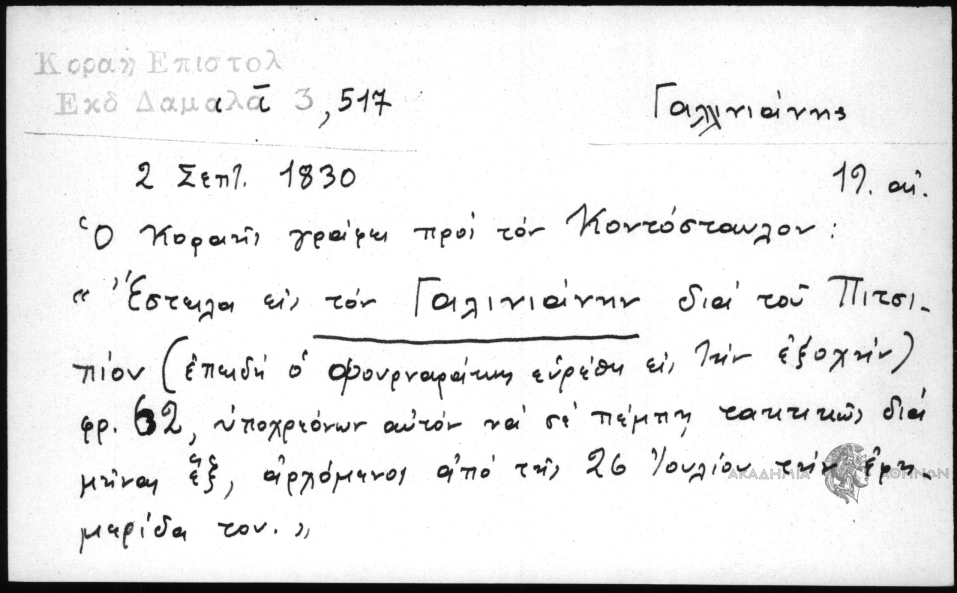 Κοραη Επιστολ
Εκδ Δαμαλα α̅ 3, 517
Γαλινιάνης
2 Σεπτ. 1830
19. αἰ.
Ὁ Κοραῆς γράφει πρὸς τὸν Κοντόσταυλον:
« Ἔστειλα εἰς τὸν Γαλινιάνην διὰ τοῦ Πιτσι-
πίον (ἐπειδὴ ὁ Φουρναράκης εὑρέθη εἰς τὴν ἐξοχήν)
φρ. 62, ὑποχρεόνων αὐτὸν νὰ σὲ πέμπῃ τακτικῶς διὰ
μῆνας ἕξ, ἀρχόμενος ἀπὸ τῆς 26 Ἰουλίου τὴν ἐφη-
μερίδα του. »
ΑΚΑΔΗΜΙΑ ΑΘΗΝΩΝ